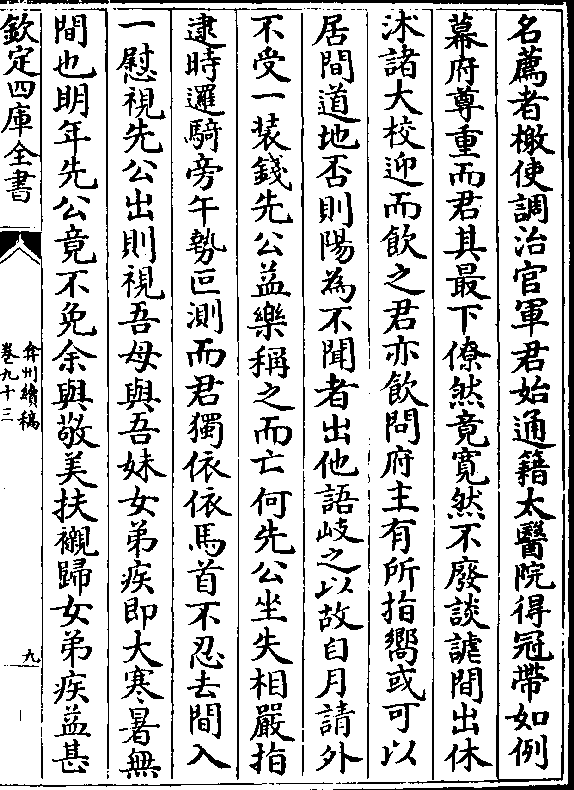 名薦者檄使調治官軍君始通籍太醫院得冠帶如例
幕府尊重而君其最下僚然竟寛然不廢談謔間出休
沐諸大校迎而飲之君亦飲問府主有所指嚮或可以
居間道地否則陽為不聞者出他語岐之以故自月請外
不受一裝錢先公益樂稱之而亡何先公坐失相嚴指
逮時邏騎旁午勢叵測而君獨依依馬首不忍去間入
一慰視先公出則視吾母與吾妹女弟疾即大寒暑無
間也明年先公竟不免余與敬美扶櫬歸女弟疾益甚
欽定四庫全書
弇州續稿
卷九十三
九